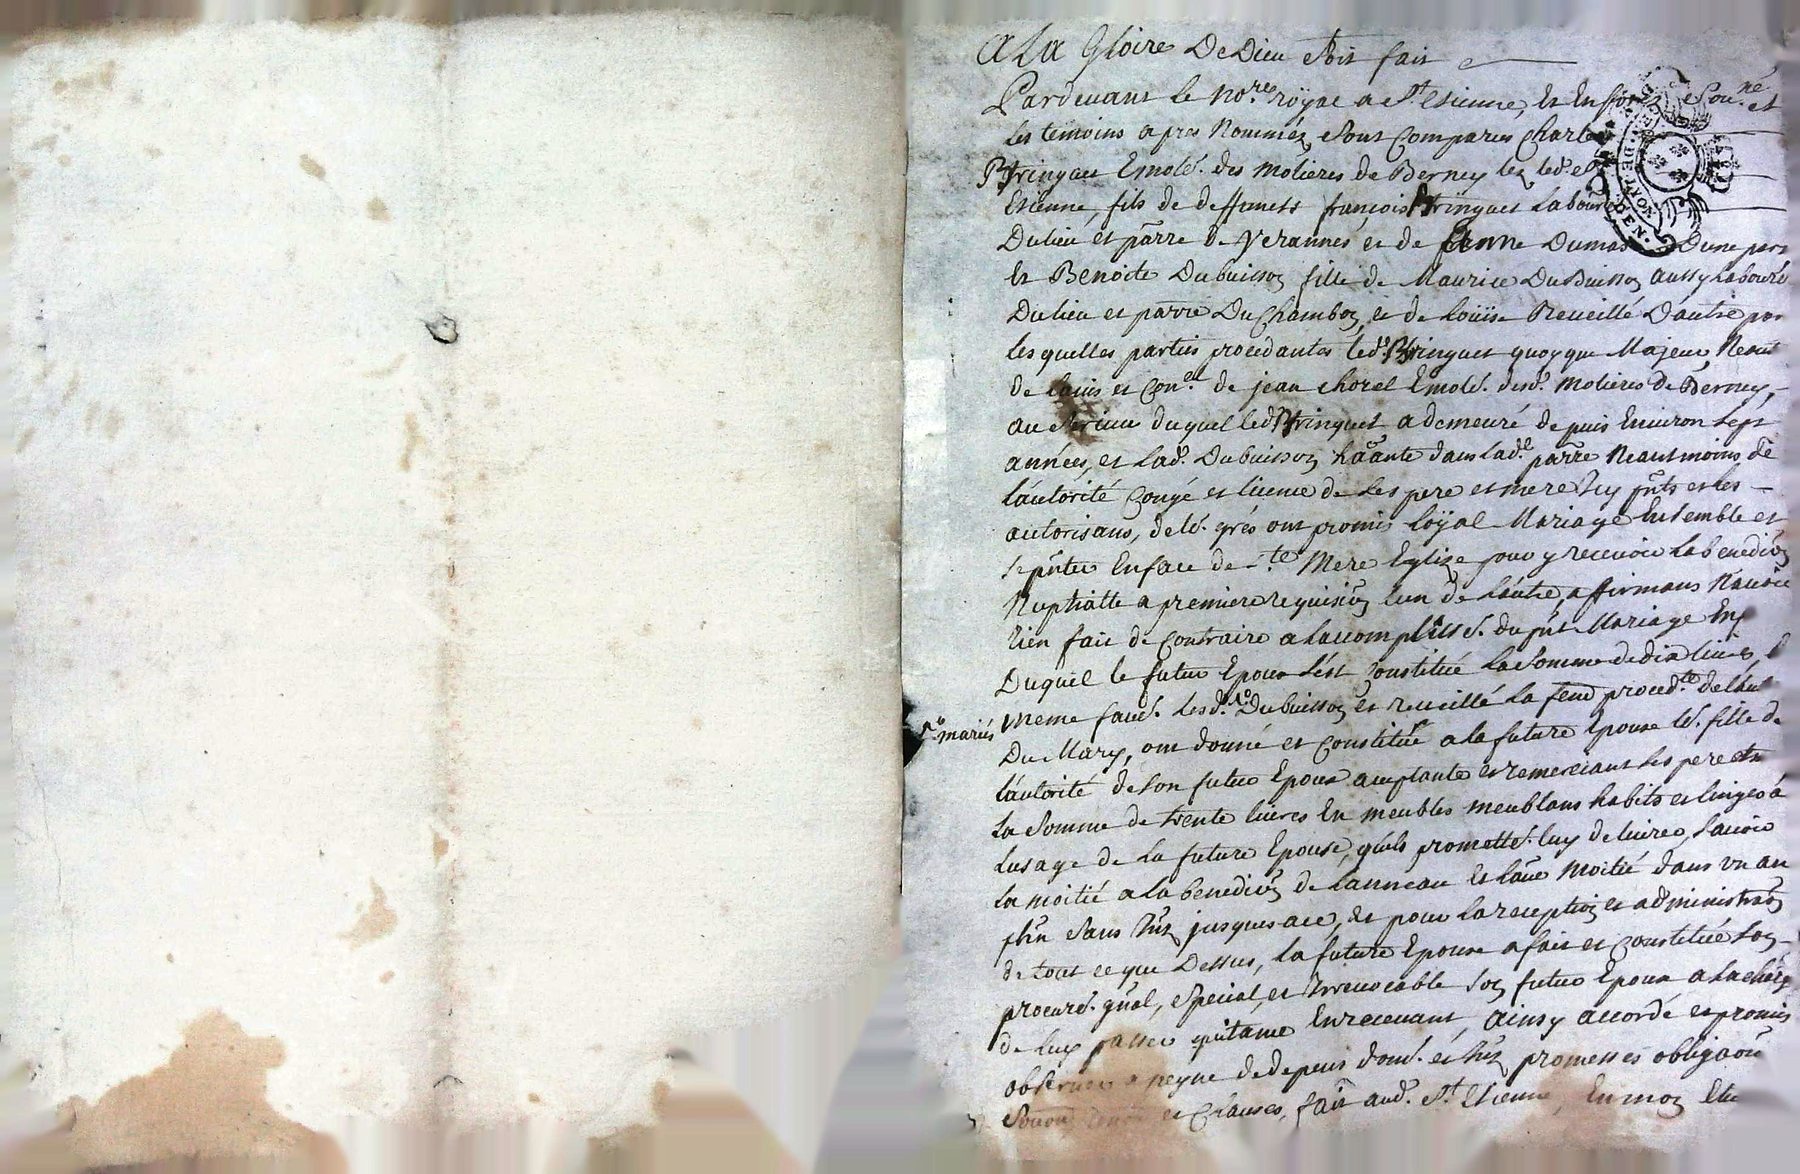 A La Gloire De Dieu Soit fait
Pardevant le no.re royal a S.t Etienne, Et En forez sou.né et
les temoins apres Nommés, sont Comparus Charle
Fringuet Emolé. des molieres de Berney lez led. S.t
Etienne, fils de deffunets françois Fringuet Laboure
Dulieu et parre de Verannes et de Dumas Dune part
Et Benoite Dubuisson fille de Maurice Dubuisson aussy Laboure
Dulieu et parre Du Chambon et de Louise Recueillé Dautre par
lesquelles parties procedantes led. Fringuet quoyque Majeur, Neant
de et Con.el de jean chorel Emolé. desd. molieres de Berney,
au service duquel led. Fringuet a demeuré depuis Environ sept
années, et lad. Dubuisson dans lad.e parre Neantmoins de
lautorité Congé et licence de ses pere et mere Icy pnts et les
autorisans, de lé. grés ont promis Loyal Mariage Ensemble et
se pnter En face de S.te Mere Eglize pour y recevoir la benedion
Nuptialle a premiere requision lun de Lautre, affirmans Navoir
rien fait de Contraire a laccompliss.t du pnt Mariage En
Duquel le futur Epoux sest Constitué la Somme de dix livres,
meme faud. lesd. Dubuisson et recueillé La feme proced.te de
s.rs mariés
Du Mary, ont donné et Constitué a la future Epouse lé. fille de
lautorité de son futur Epoux acceptante et remerciant ses pere et
la Somme de trente livres En meubles meublans habits et linges a
lusage de La future Epouse, quils promette.t luy delivrer, savoir
la moitié a la benedion de lanneau Et lautre moitié dans un an
phn sans jusques a ce, et pour la reception et administraon
de tout ce que Dessus, la future Epouse a fait et Constitué son
procure.r gnal, special, et Irrevocable son futur Epoux a la charge
de luy passer quitance En recevant, ainsy accordé et promis
observer a peyne de depens dom.s et promesses obligaon
et Clauses, fait aud. S.t Etienne, En mon Etu